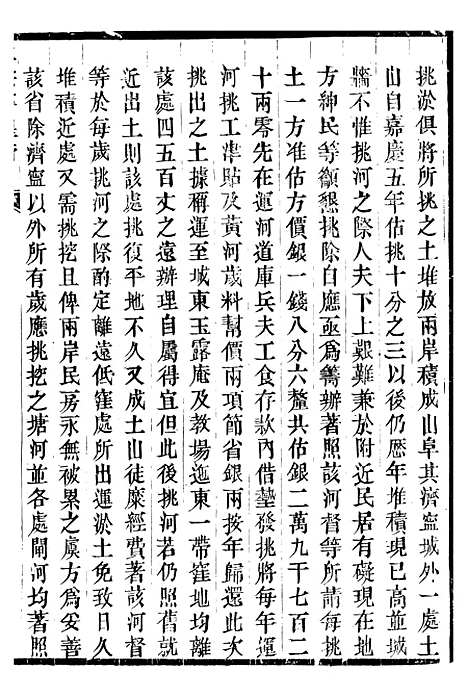 挑淤俱將所挑之土堆放兩岸積成山阜其濟寧城外一處土
山自嘉慶五年估挑十分之三以後仍歷年堆積現已高並城
牆不惟挑河之際人夫下上艱難兼於附近民居有礙現在地
方紳民等籲懇挑除自應亟爲籌辦著照該河督等所請每挑
土一方准估方價銀一錢八分六釐共估銀二萬九千七百二
十兩零先在運河道庫兵夫工食存款內借墊發挑將每年運
河挑工津貼及黃河歲料幫價兩項節省銀兩按年歸還此次
挑出之土據稱運至城東玉露庵及教場迤東一帶窪地均離
該處四五百丈之遠辦理自屬得宜但此後挑河若仍照舊就
近出土則該處挑復平地不久又成土山徒糜經費著該河督
等於每歲挑河之際酌定離遠低窪處所出運淤土免致日久
堆積近處又需挑挖且俾兩岸民房永無被累之虞方爲妥善
該省除濟寧以外所有歲應挑挖之塘河並各處閘河均著照